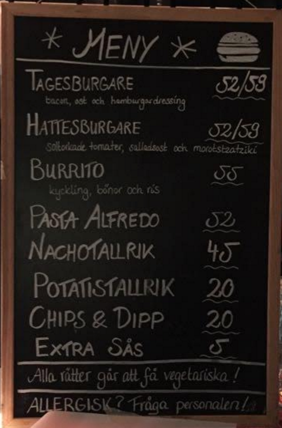 * MENY *
TAGESBURGARE 52/59
bacon, ost och hamburgardressing
HATTESBURGARE 52/59
soltorkade tomater, salladsost och morotstzatziki
BURRITO 55
kyckling, bönor och ris
PASTA ALFREDO 52
NACHOTALLRIK 45
POTATISTALLRIK 20
CHIPS & DIPP 20
EXTRA SÅS 5
Alla rätter går att få vegetariska!
ALLERGISK? Fråga personalen!